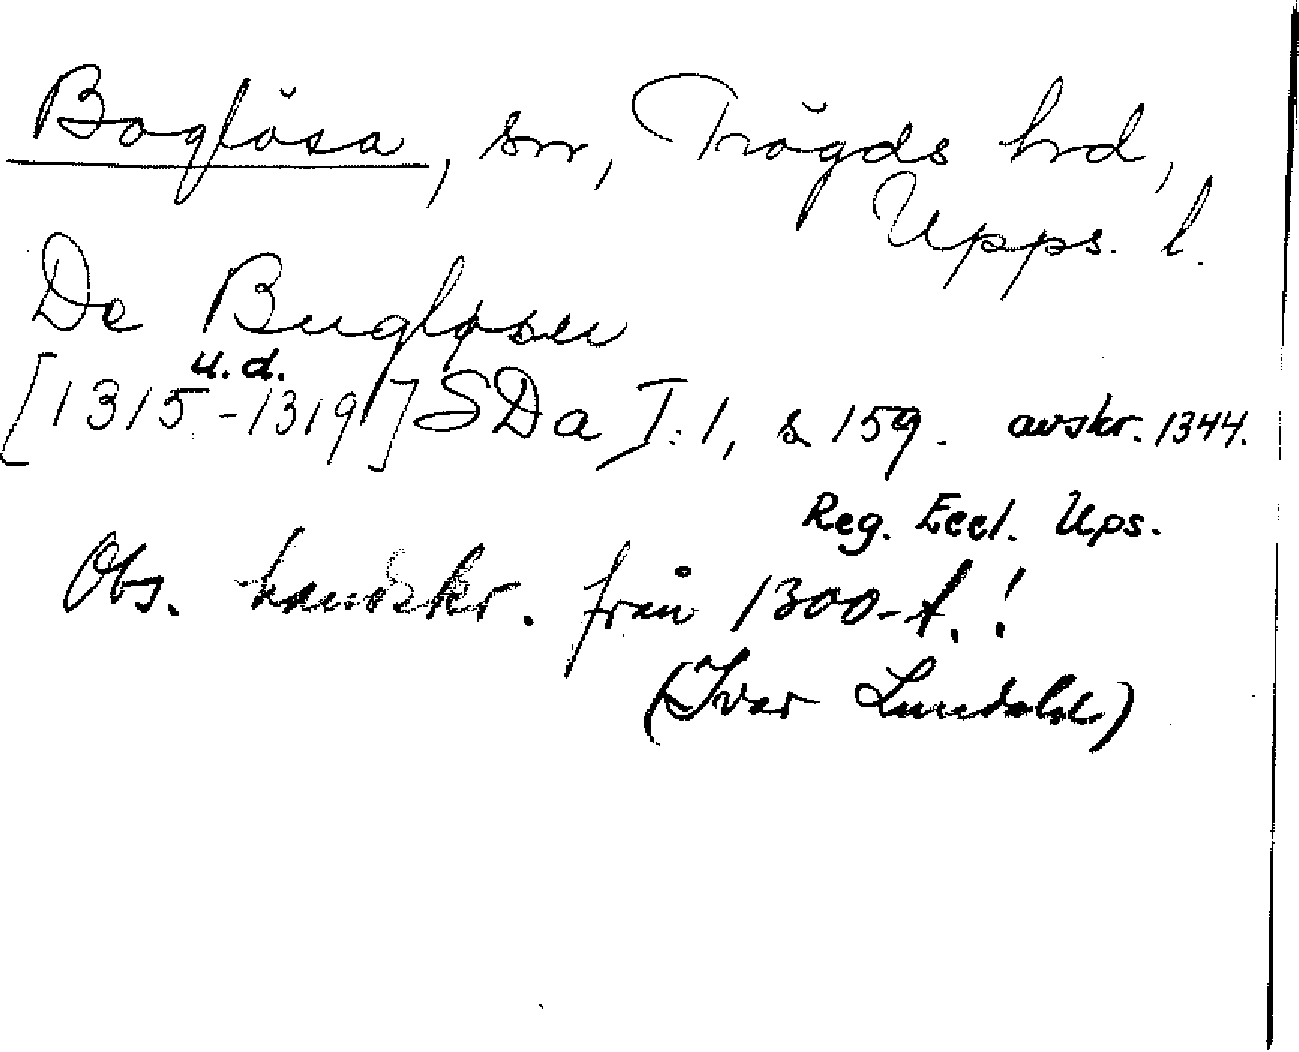 Boglösa, sn, Trögds hrd,
Upps. l.
De Bugløsu
u.d.
[1315-1319] SDa I:1, s 159. avskr. 1344.
Reg. Eccl. Ups.
Obs. handskr. från 1300-t.!
(Ivar Lundahl)